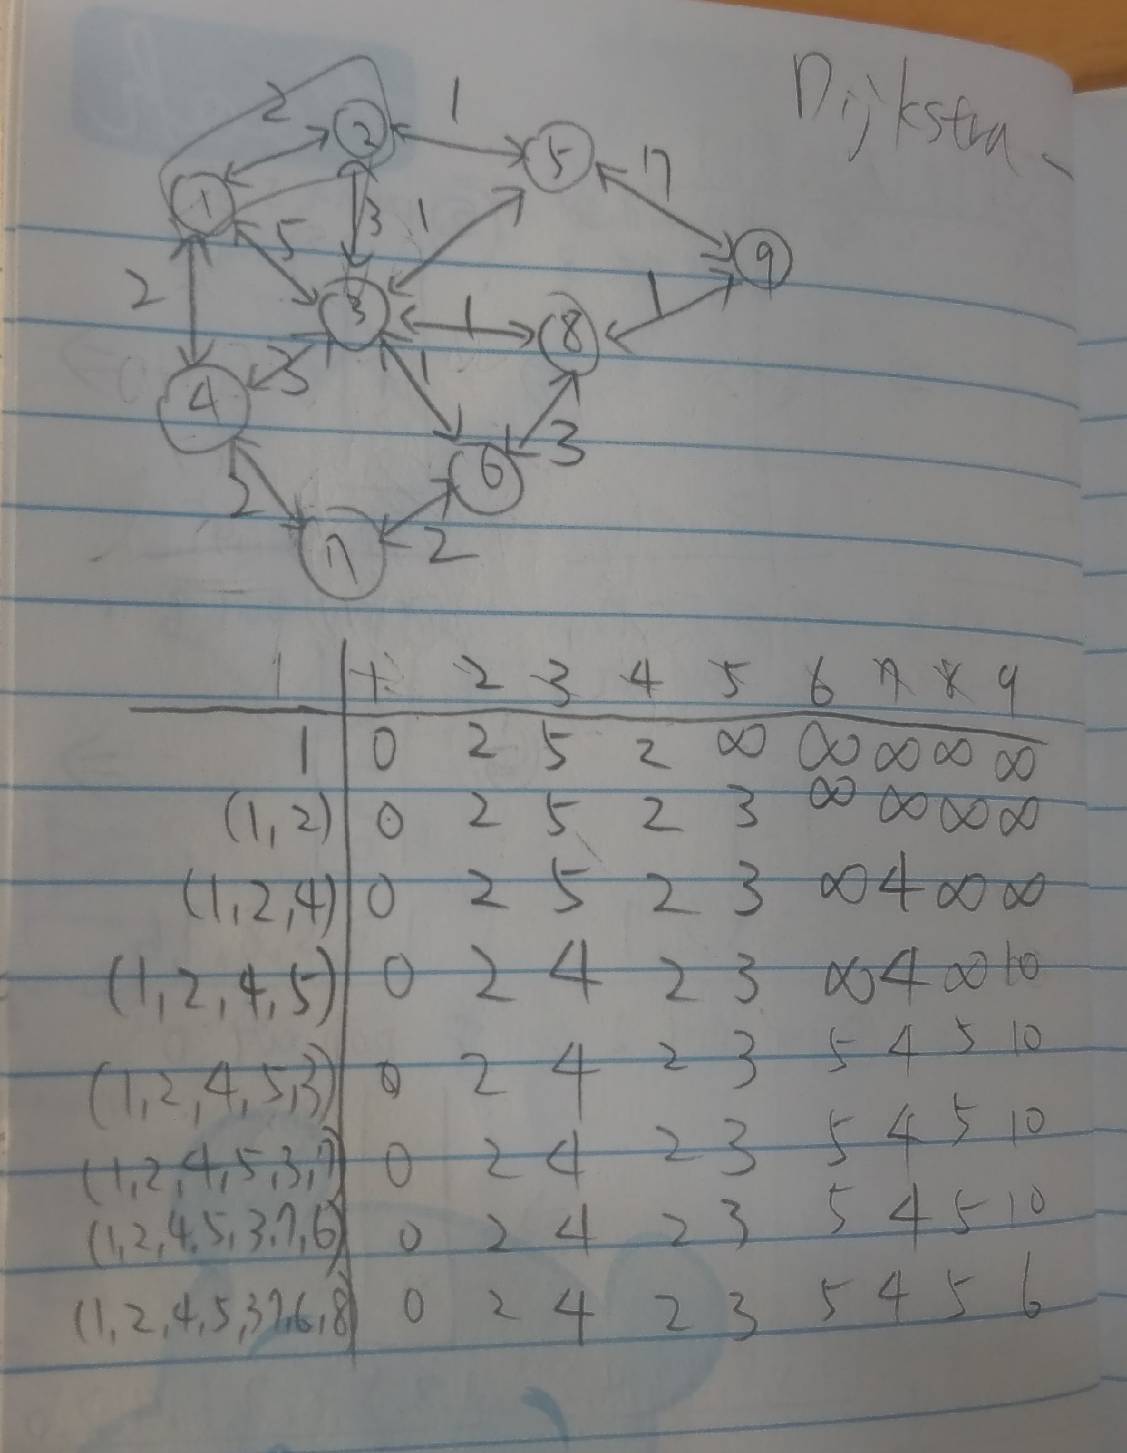 Dijkstra
2 1
2
5
7
1
5 3 1
9
2
3 1 8 1
3 1
4
6 3
2
7 2
1 1 2 3 4 5 6 7 8 9
1 0 2 5 2 ∞ ∞ ∞ ∞ ∞
(1,2) 0 2 5 2 3 ∞ ∞ ∞ ∞
(1,2,4) 0 2 5 2 3 ∞ 4 ∞ ∞
(1,2,4,5) 0 2 4 2 3 ∞ 4 ∞ 10
(1,2,4,5,3) 0 2 4 2 3 5 4 5 10
(1,2,4,5,3,7) 0 2 4 2 3 5 4 5 10
(1,2,4,5,3,7,6) 0 2 4 2 3 5 4 5 10
(1,2,4,5,3,7,6,8) 0 2 4 2 3 5 4 5 6